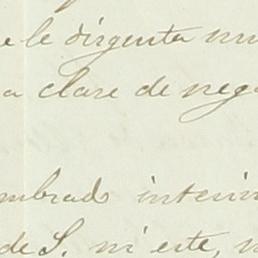 e le dirgenta mu
a clase de nego
mbrado interin
de S. ni este, n